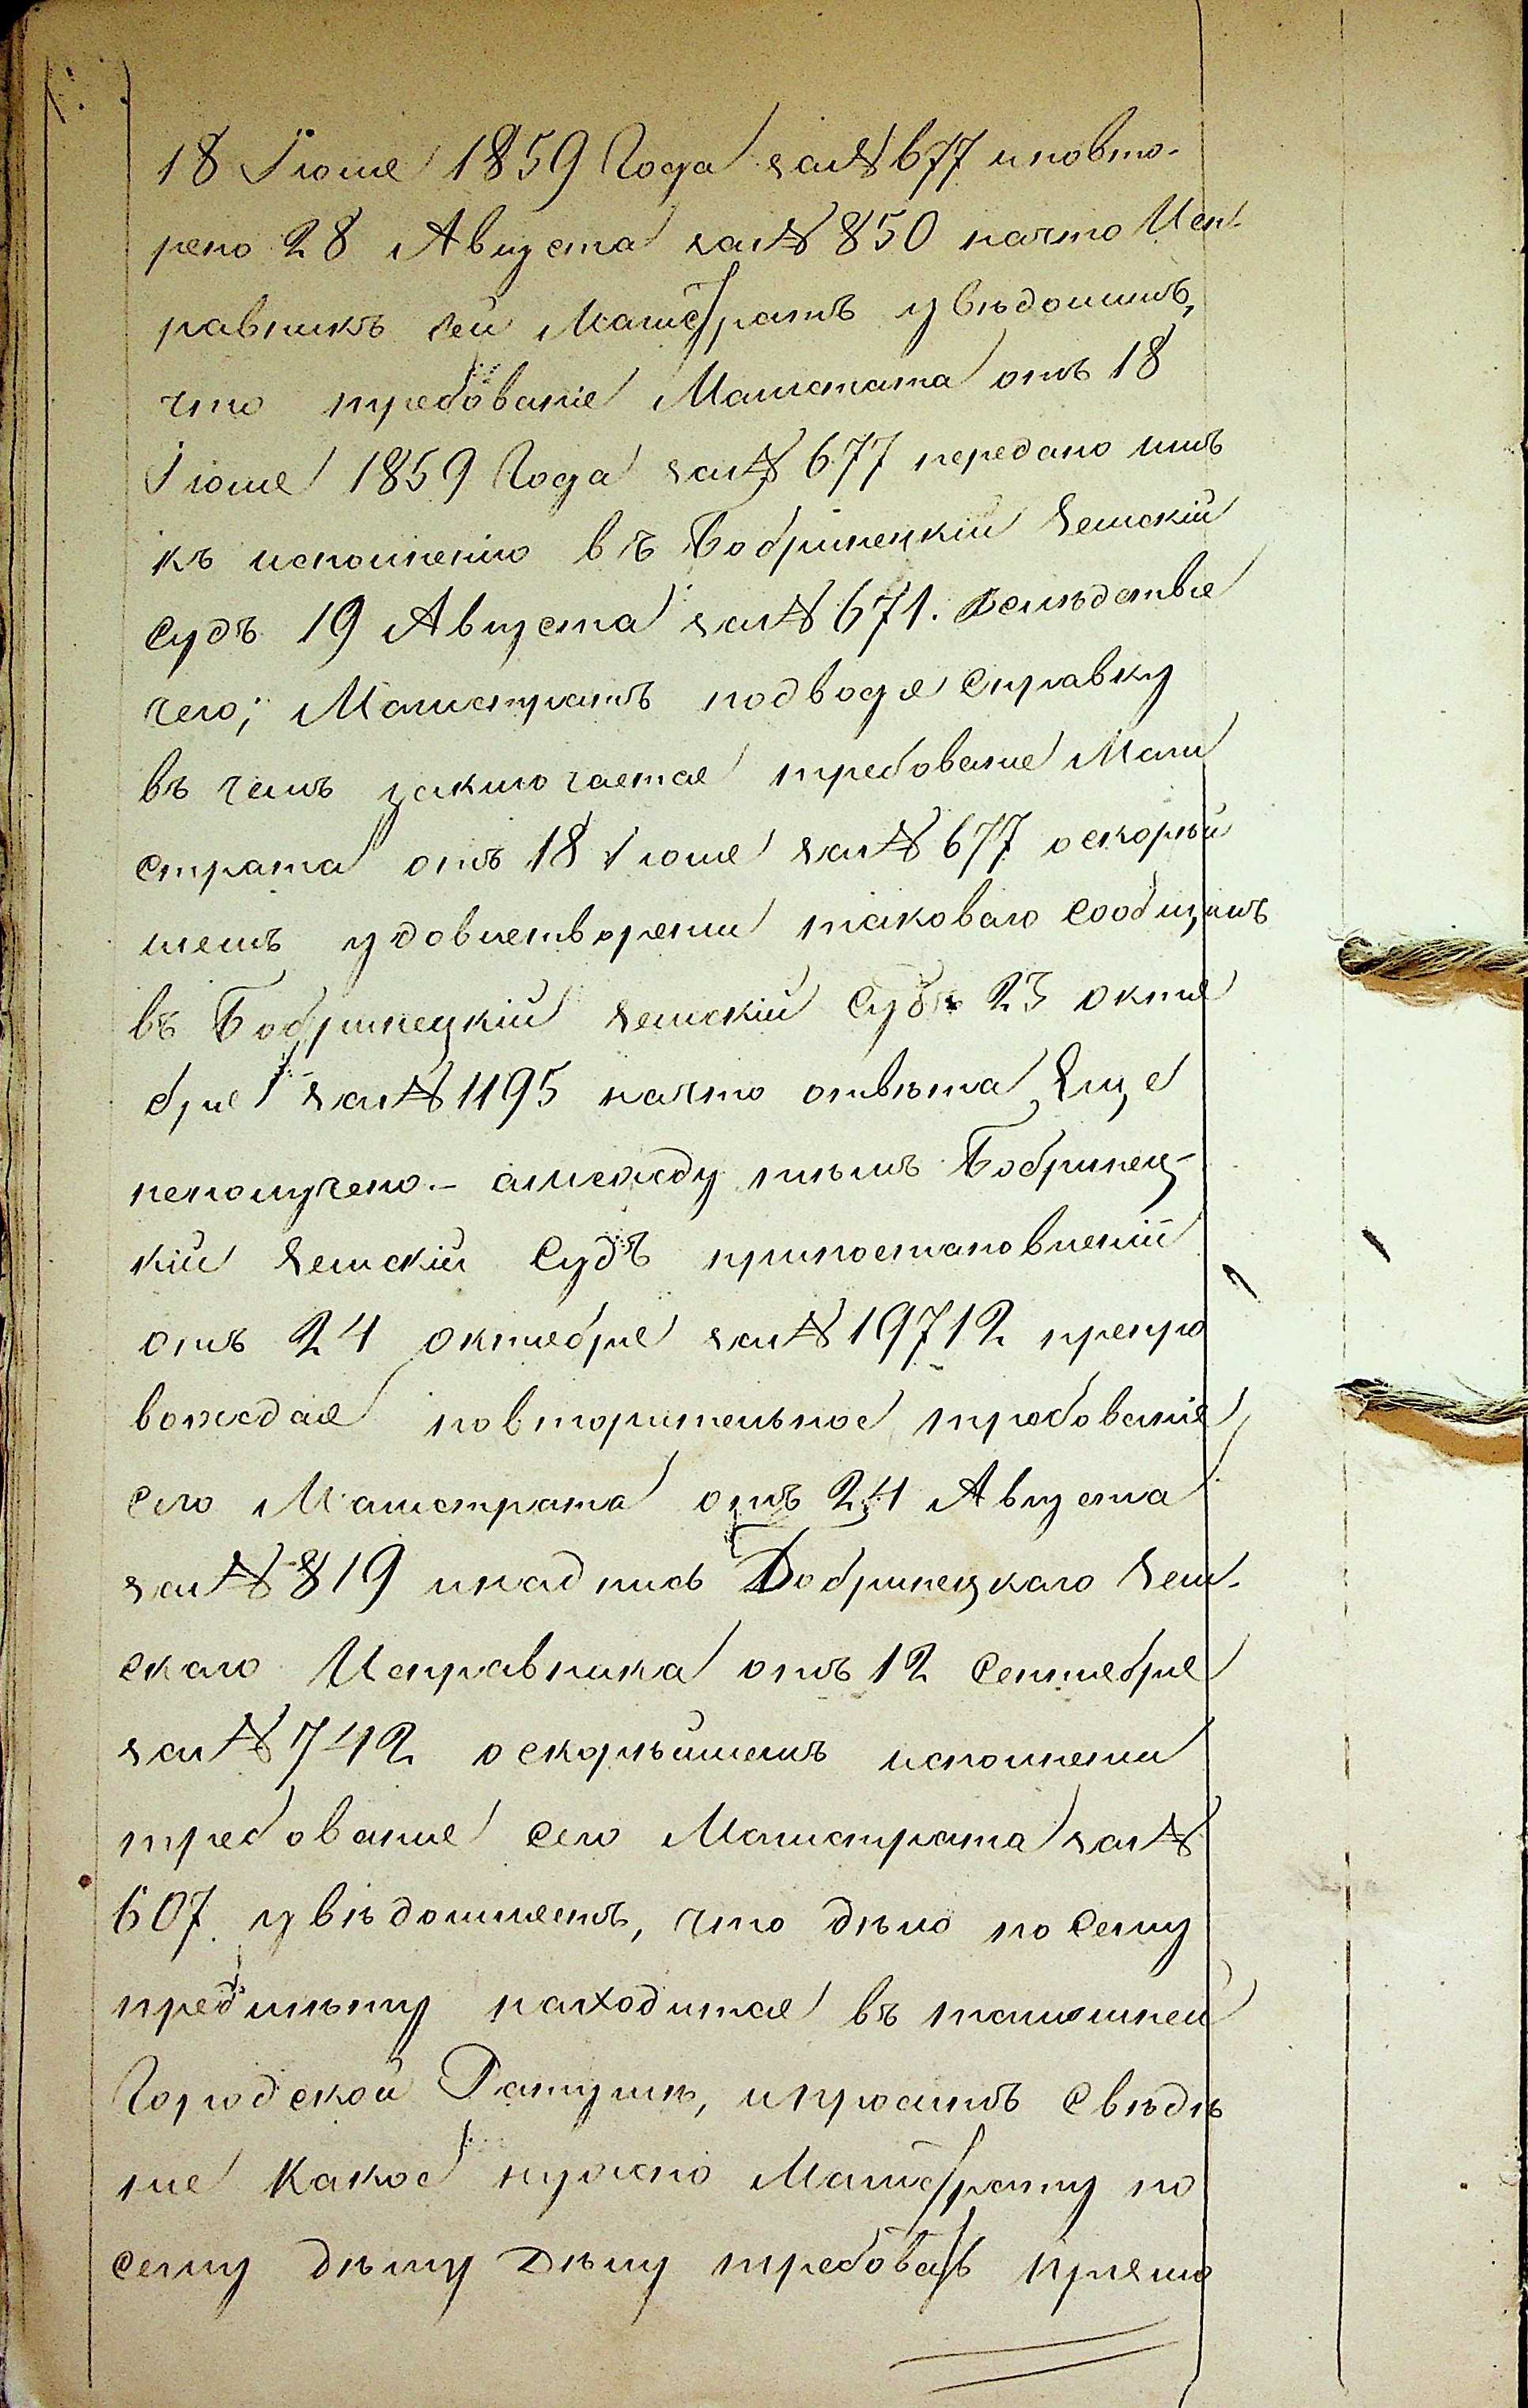 18 Іюля 1859 Года за № 677 и повто-
рено 28 Августа за № 850 на что Исп-
равникъ сей Магистратъ увѣдомилъ,
что требованіе Магистата отъ 18
Іюля 1859 Года за № 677 передано имъ
къ исполненію въ Бобринецкій Земскій
Судъ 19 Августа за № 671. Вслѣдствіе
чего; Магистратъ подводя Справку
въ чемъ заключается требованіе Маги
страта отъ 18 Іюля за № 677 о скорѣй
шемъ удовлетвореніи таковаго Сообщилъ
въ Бобринецкій Земскій Судъ 23 Октя
бря за № 1195 на что отвѣта Еще
не получено.- а между тѣмъ Бобринец-
кій Земскій Судъ при постановленіи
отъ 24 Октября за № 19712 препро
вождая повторительное требованіе
сего Магистрата отъ 24 Августа
за № 819 и надпись Бобринецкаго Зем-
скаго Исправника отъ 12 Сентября
за № 742 о скорѣйшемъ исполненіи
требованіе Сего Магистрата за №
607 увѣдомляетъ, что дѣло по Сему
предмѣту находится въ тамошней
Городской Ратушѣ, и проситъ Свѣдѣ
ніе Какое нужно Магистрату по
Сему дѣлу Дѣлу требовать прямо